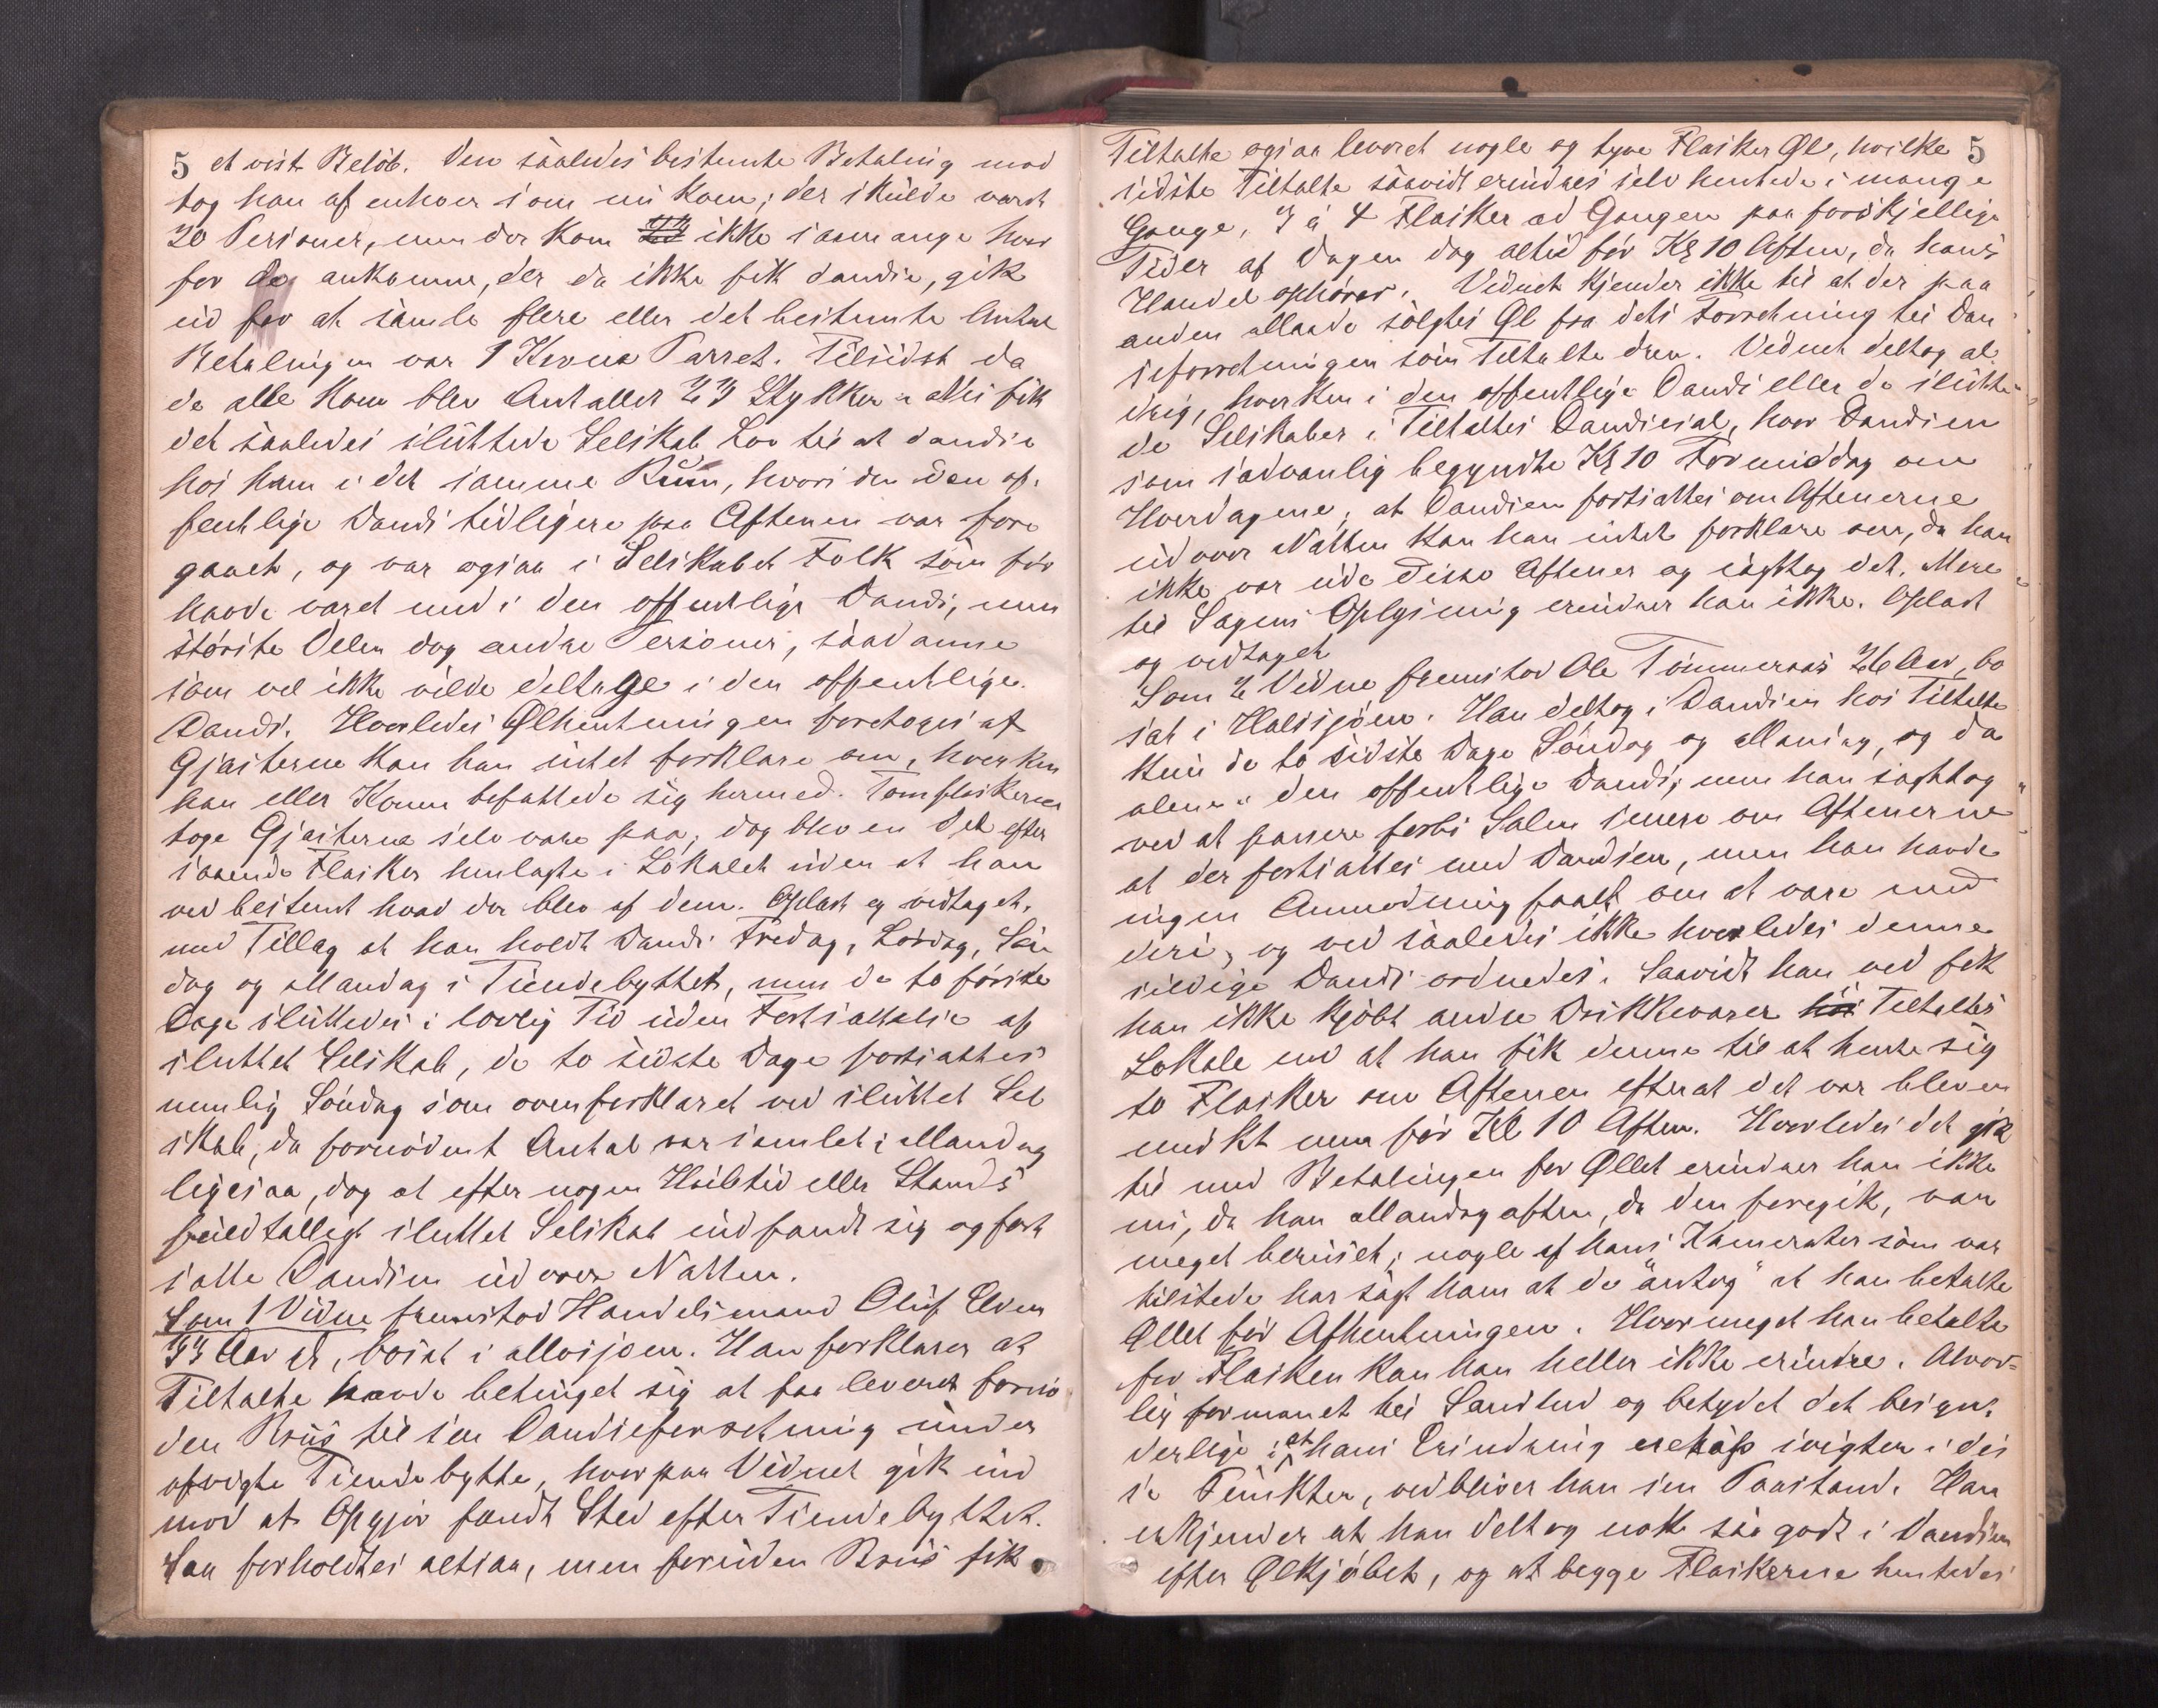 5 et vist Beløb. Den saaledes bestemte Betaling mod
tog han af enhver som nu kom; der skulde været
20 Personer, men der kom ikke saamange hvor
for de ankomne, der da ikke fik dandse, gik
ud for at samle flere eller det bestemte Antal
Betalingen var 1 Krone Parret. Tilsidst da
de alle kom blev Antallet 23 Stykker. Nei fik
det saaledes sluttede Selskab Lov til at dandse
hos ham i det samme Rum, hvori den den of-
fentlige Dands tidligere paa Aftenen var fore
gaaet, og var ogsaa i Selskabet Folk som før
havde været med i den offentlige Dands, men
største Delen dog andre Personer, saadanne
som vel ikke vilde deltage i den offentlige
Dands. Hvorledes Ølhentningen foretoges af
Gjæsterne kan han intet forklare om, hverken
han eller Konen befattede sig hermed. Tomflaskerne
toge Gjæsterne selv vare paa, dog blev en Del efter
saadanne Flasker henlagte i Lokalet uden at han
ved bestemt hvad der blev af dem. Oplæst og vedtaget.
med Tillæg at han holdt Dands Fredag, Lørdag, Søn
dag og Mandag i Tiendebyttet, men de to første
Dage sluttedes i lovlig Tid uden Fortsættelse af
sluttet Selskab, de to sidste Dage fortsattes
nemlig Søndag som ovenforklaret ved sluttet Sel
skab, da fornødent Antal var samlet; Mandag
ligesaa, dog at efter nogen Hviletid eller Stands
fuldtalligt sluttet Selskab indfandt sig og fort
satte Dandsen udover Natten.
Som 1 Vidne fremstod Handelsmand Oluf Elden
33 Aar gl, bosat i Mosjøen. Han forklarer at
Tiltalte havde betinget sig at faa leveret fornø
den Brus til sin Dandseforretning under
afvigte Tiendebytte, hvorpaa Vidnet gik ind
mod at Opgjør fandt Sted efter Tiendebyttet.
Saa forholdtes altsaa, men foruden Brus fik
Tiltalte ogsaa leveret nogle og tyve Flasker Øl, hvilke 5
sidste Tiltalte saavidt erindres selv hentede i mange
Gange, 3 á 4 Flasker ad Gangen paa forskjellige
Tider af Dagen dog altid før Kl 10 Aften, da hans
Handel ophører. Vidnet kjender ikke til at der paa
anden Maade solgtes Øl fra dets Forretning til Dan
seforretningen som Tiltalte drev. Vidnet deltog al
drig, hverken i den offentlige Dands eller de slutte
de Selskaber i Tiltaltes Dandsesal, hvor Dandsen
som sædvanlig begyndte Kl 10 Formiddag om
Hverdagene; at Dandsen fortsattes om Aftenerne
udover Natten kan han intet forklare om, da han
ikke var ude disse Aftener og iagttog det. Mere
til Sagens Oplysning erindrer han ikke. Oplæst
og vedtaget
Som 2 Vidne fremstod Ole Tømmeraas 26 Aar, bo
sat i Halsjøen. Han deltog i Dandsen hos Tiltalte
kun de to sidste Dage Søndag og Mandag, og da
alene i den offentlige Dands; men han iagttog
ved at passere forbi Salen senere om Aftenerne
at der fortsattes med Dandsen, men han havde
ingen Anmodning faaet om at være med
deri, og ved saaledes ikke hvorledes denne
sildige Dands ordnedes. Saavidt han ved fik
han ikke kjøbt andre Drikkevarer hos Tiltaltes
Lokale end at han fik denne til at hente sig
to Flasker om Aftenen efterat det var bleven
mørkt men før Kl 10 Aften. Hvorledes det gik
til med Betalingen for Øllet erindrer han ikke
nu, da han Mandagaften, da den foregik, var
meget beruset; nogle af hans Kamerater som var
tilstede har sagt ham at de "antog" at han betalte
Øllet før Afhentningen. Hvormeget han betalte
for Flasken kan han heller ikke erindre. Alvor-
lig formanet til Sandhed og betydet det besyn-
derlige i at hans Erindring svigter i dis
se Punkter, vedbliver han sin Paastand. Han
erkjender at han deltog nok saa godt i Dandsen
efter Ølkjøbet, og at begge Flaskerne hentedes